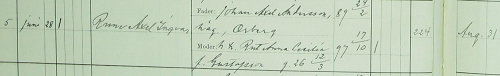 Fader: Johan Axel Andersson, 89 24/2
5 juni 28 1 Rune Axel Ingvar
Örberg 224 Aug. 31
Moder: h. h. Rut Anna Cecilia 97 17/10 1
f. Gustafsson g. 26 12/3